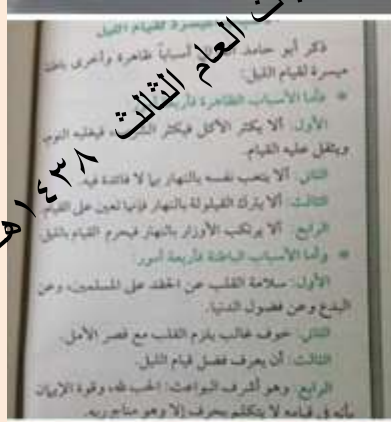 ميسرة لقيام الليل
ذكر أبو حامد أسباباً ظاهرة وأخرى باطنة
ميسرة لقيام الليل:
* فأما الأسباب الظاهرة فأربعة
الأول: ألا يكثر الأكل فيكثر فيغلبه النوم
ويثقل عليه القيام.
الثاني: ألا يتعب نفسه بالنهار بما لا فائدة فيه.
الثالث: ألا يترك القيلولة بالنهار فإنها تعين على القيام.
الرابع: ألا يرتكب الأوزار بالنهار فيحرم القيام بالليل.
* وأما الأسباب الباطنة فأربعة أمور:
الأول: سلامة القلب عن الحقد على المسلمين، وعن
البدع وعن فضول الدنيا.
الثاني: خوف غالب يلزم القلب مع قصر الأمل.
الثالث: أن يعرف فضل قيام الليل.
الرابع: وهو أشرف البواعث: الحب لله، وقوة الإيمان
بأنه في قيامه لا يتكلم بحرف إلا وهو مناج ربه.
العام الثالث ١٤٣٨هـ